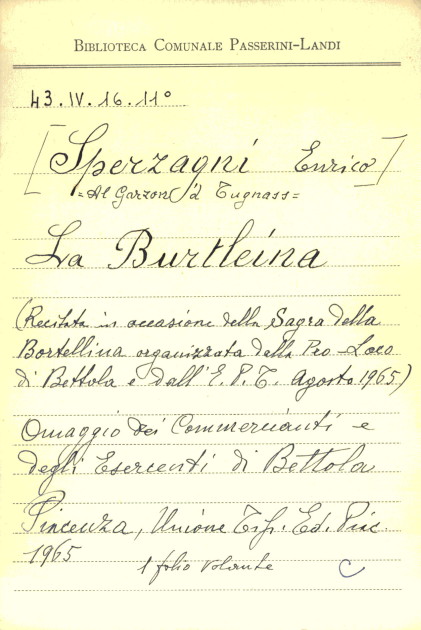 BIBLIOTECA COMUNALE PASSERINI-LANDI
43.IV.16.11°
[Sperzagni Enrico]
=Al Garzon d' Tugnass=
La Burtleina
(Recitata in occasione della Sagra della
Bortellina organizzata della Pro-Loco
di Bettola e dall'E.P.T. Agosto 1965)
Omaggio dei Commercianti e
degli Esercenti di Bettola
Piacenza, Unione Tip. Ed. Piac.
1965
1 folio volante
C